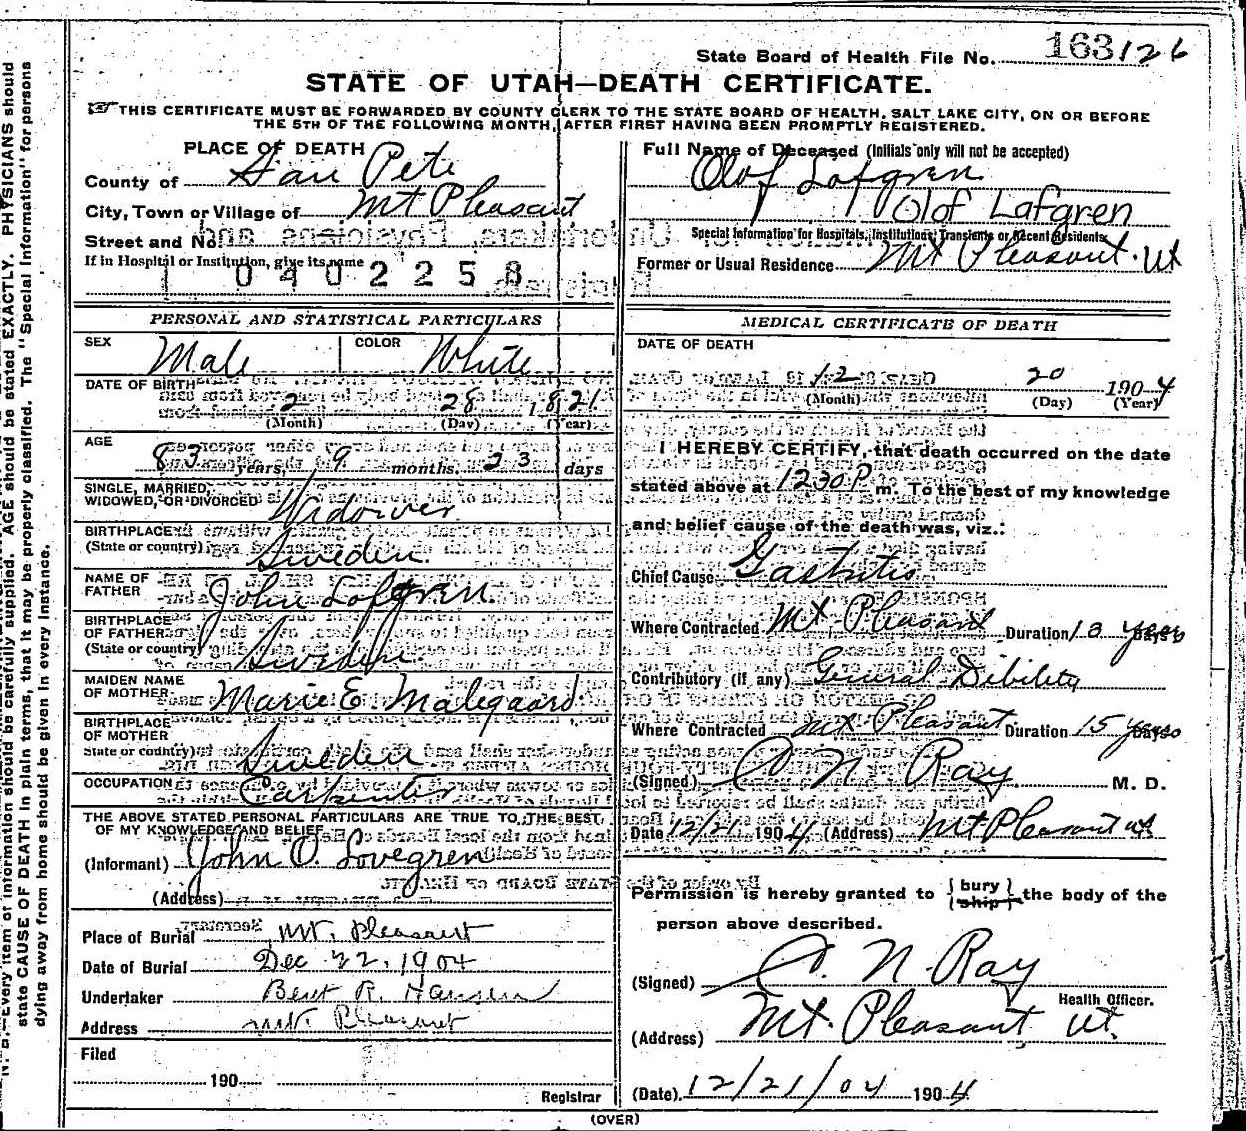 State Board of Health File No. 163126
STATE OF UTAH—DEATH CERTIFICATE.
THIS CERTIFICATE MUST BE FORWARDED BY COUNTY CLERK TO THE STATE BOARD OF HEALTH, SALT LAKE CITY, ON OR BEFORE
THE 5TH OF THE FOLLOWING MONTH, AFTER FIRST HAVING BEEN PROMPTLY REGISTERED.
PLACE OF DEATH
County of San Pete
City, Town or Village of Mt Pleasant
Street and No.
If in Hospital or Institution, give its name
1 0 4 0 2 2 5 8
Full Name of Deceased (Initials only will not be accepted)
Olof Lofgren
Olof Lafgren
Special Information for Hospitals, Institutions, Transients or Recent Residents
Former or Usual Residence Mt Pleasant. Ut
PERSONAL AND STATISTICAL PARTICULARS
SEX Male COLOR White
DATE OF BIRTH
2 28 1821
(Month) (Day) (Year)
AGE
83 years, 9 months. 23 days
SINGLE, MARRIED,
WIDOWED, OR DIVORCED Widower
BIRTHPLACE
(State or country) Sweden.
NAME OF
FATHER John Lofgren
BIRTHPLACE
OF FATHER
(State or country) Sweden.
MAIDEN NAME
OF MOTHER Marie E. Malegaard.
BIRTHPLACE
OF MOTHER
State or country) Sweden
OCCUPATION Carpenter
THE ABOVE STATED PERSONAL PARTICULARS ARE TRUE TO THE BEST
OF MY KNOWLEDGE AND BELIEF
(Informant) John O. Lovegren
(Address)
Place of Burial Mt. Pleasant
Date of Burial Dec 22, 1904
Undertaker Bent R. Hansen
Address Mt. Pleasant
Filed
190
Registrar
MEDICAL CERTIFICATE OF DEATH
DATE OF DEATH
12 20 1904
(Month) (Day) (Year)
I HEREBY CERTIFY, that death occurred on the date
stated above at 1230 P m. To the best of my knowledge
and belief cause of the death was, viz.:
Chief Cause Gastritis
Where Contracted Mt Pleasant Duration 10 years
Contributory (if any) General Dibility
Where Contracted Mt Pleasant. Duration 15 years
(Signed) O. N. Ray M. D.
Date 12/21 1904 (Address) Mt Pleasant ut
Permission is hereby granted to { bury } { ship } the body of the
person above described.
(Signed) O. N. Ray
Health Officer.
(Address) Mt. Pleasant, Ut.
(Date) 12/21/04 1904
(OVER)
N. B.—Every item of information should be carefully supplied. AGE should be stated EXACTLY. PHYSICIANS should
state CAUSE OF DEATH in plain terms, that it may be properly classified. The "Special Information" for persons
dying away from home should be given in every instance.